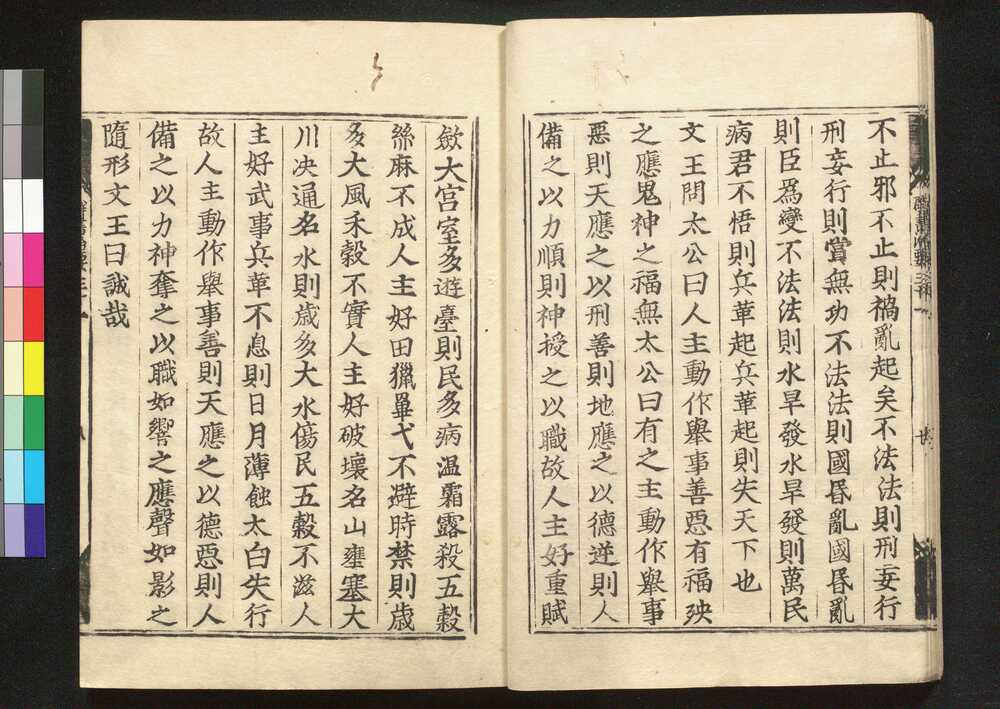 不止邪不止則禍亂起矣不法法則刑妄行
刑妄行則賞無功不法法則國昬亂國昬亂
則臣爲變不法法則水旱發水旱發則萬民
病君不悟則兵革起兵革起則失天下也
文王問太公曰人主動作舉事善惡有福殃
之應鬼神之福無太公曰有之主動作舉事
惡則天應之以刑善則地應之以德逆則人
備之以力順則神授之以職故人主好重賦
斂大宮室多遊臺則民多病温霜露殺五穀
絲麻不成人主好田獵畢弋不避時禁則歲
多大風禾穀不實人主好破壞名山壅塞大
川决通名水則歲多大水傷民五穀不滋人
主好武事兵革不息則日月薄蝕太白失行
故人主動作舉事善則天應之以德惡則人
備之以力神奪之以職如響之應聲如影之
隨形文王曰誠哉